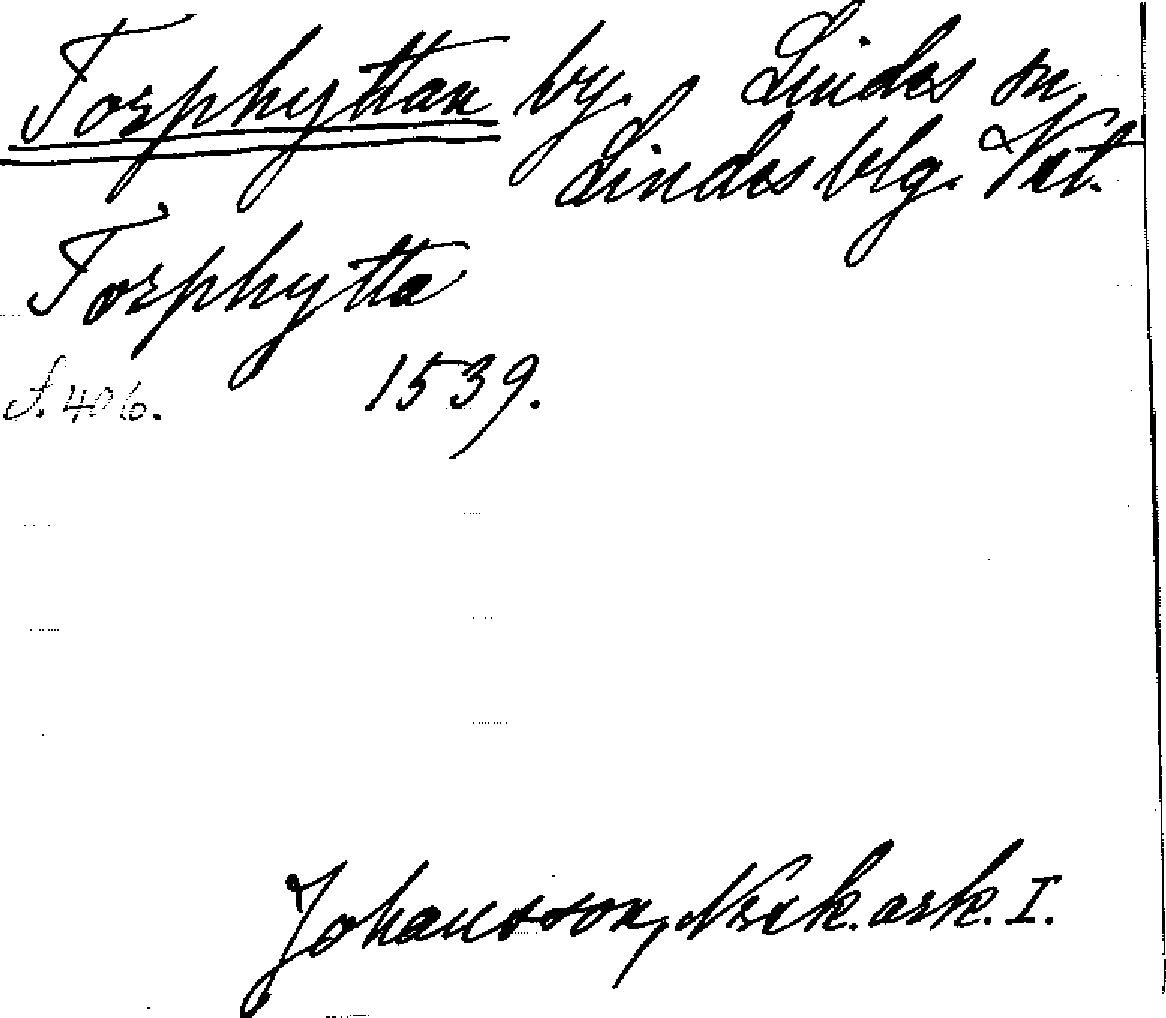 Torphyttan by. Lindes sn,
Lindes blg. Vstm.
Torphytta
S. 406. 1539.
Johansson, Norak. ark. I.